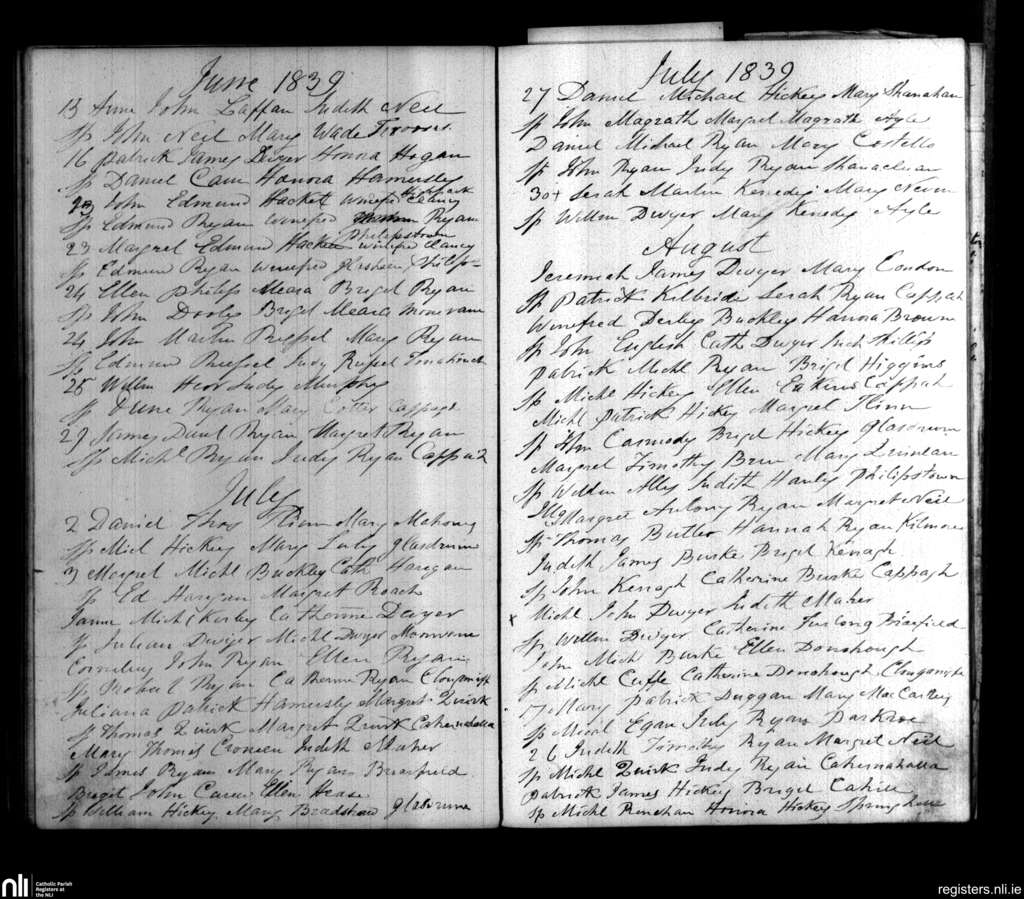 June 1839
13 Anne John Lappan Judith Neil
Sp John Neil Mary Wade
16 Patrick James Dwyer Honora Hogan
Sp Daniel Cain Honora Hamersly
23 John Edmund Hacket Winefred Clancy
Sp Edmund Ryan Winefred Ryan
Philipstown
23 Margret Edmund Hacket Winifred Clancy
Sp Edmund Ryan Winefred
24 Ellen Philip Meara Brigel Ryan
Sp John Dooly Brigel Meara Monevam
24 John Martin Mary Ryan
Sp Edmund Judy
25 Willm Judy Murphy
Sp Ryan Mary Cotter Cappagh
29 James Danl Ryan Margret Ryan
Sp Michl Ryan Judy Ryan Cappah
July
2 Daniel Thos Flinn Mary Mahony
Sp Micl Hickey Mary Luby Glasdrum
3 Margret Michl Buckley Cath Harigan
Sp Ed Harigan Margret Roach
Michl Kirby Catherine Dwyer
Sp Julian Dwyer Michl Dwyer
Cornelius John Ryan Ellen Ryan
Sp Robert Ryan Catherine Ryan
Juliana Patrick Hamersly Margret Quirk
Sp Thomas Quirk Margret Quirk Cahernahalla
Mary Thomas Croneen Judith Maher
Sp James Ryan Mary Ryan Briarfield
Brigit John Carew Ellen
Sp William Hickey Mary Bradshaw Glasdrum
July 1839
27 Daniel Michael Hickey Mary Shanahan
Sp John Magrath Margret Magrath Ayle
Daniel Michael Ryan Mary Costello
Sp John Ryan Judy Ryan
30 + Serah Martin Kenedy Mary
Sp Willm Dwyer Mary Kenedy Ayle
August
Jeremiah James Dwyer Mary Condon
Sp Patrick Kilbride Serah Ryan Cappah
Winefred Derby Buckley Hanora Brown
Sp John English Cath Dwyer
Patrick Michl Ryan Brigel Higgins
Sp Michl Hickey Ellen Cappah
Michl Patrick Hickey Margret Flinn
Sp Jhn Carmody Brigel Hickey Glasdrum
Margret Timothy Mary
Sp Willm Judith Hanly Philipstown
Margret Antony Ryan Margret Neil
Sp Thomas Butler Hannah Ryan Kilmore
Judith James Burke Brigel Kenagh
Sp John Kenagh Catherine Burke Cappagh
x Michl John Dwyer Judith Maher
Sp Willm Dwyer Catherine Furlong Briarfield
John Michl Burke Ellen Donohough
Sp Michl Catherine Donohough
17 Mary Patrick Duggan Mary
Sp Micel Egan Judy Ryan
26 Judith Timothy Ryan Margret Neil
Sp Michl Quirk Judy Ryan Cahernahalla
Patrick James Hickey Brigel Cahill
Sp Michl Renehan Honora Hickey
nli
Catholic Parish
Registers at
the NLI
registers.nli.ie